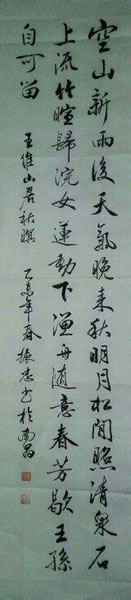 空山新雨後天氣晚来秋明月松間照清泉石
上流竹喧歸浣女蓮動下漁舟随意春芳歇王孫
自可留
王維山居秋暝
乙未年春振忠書於南昌